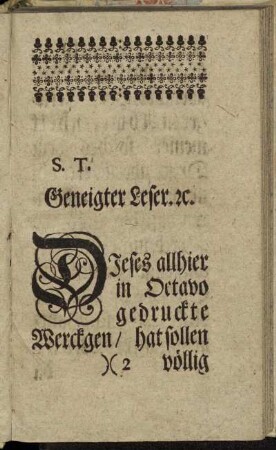 S. T.
Geneigter Leser. ꝛc.
DJeses allhier
in Octavo
gedruckte
Werckgen / hat sollen
)( 2 völlig